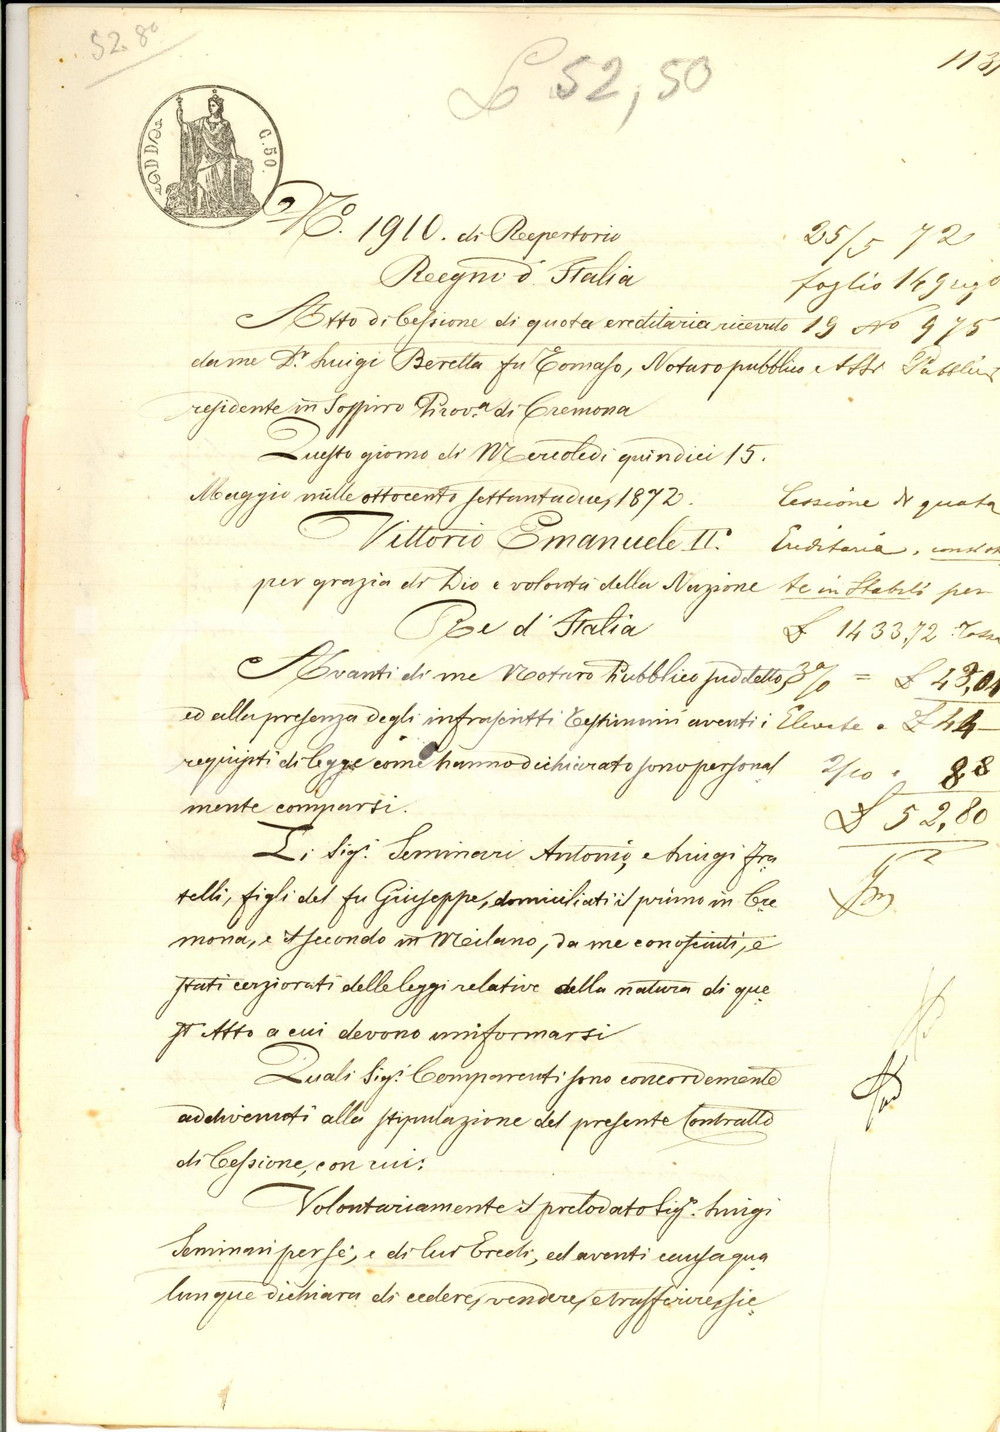 52.80
£ 52,50
113
C. 50.
N.° 1910. di Repertorio
Regno d'Italia
Atto di Cessione di quota ereditaria ricevuto
da me D.r Luigi Beretta fu Tomaso, Notaro pubblico
residente in Sospiro Prov.a di Cremona
Questo giorno di Mercoledi quindici 15.
Maggio mille ottocento settantadue, 1872.
Vittorio Emanuele II.°
per grazia di Dio e volontà della Nazione
Re d'Italia
Avanti di me Notaro Pubblico suddetto,
ed alla presenza degli infrascritti Testimoni aventi i
requisiti di legge come hanno dichiarato sono personal
mente comparsi.
Li Sig.i Seminari Antonio, e Luigi fra
telli, figli del fu Giuseppe, domiciliati il primo in Cre
mona, e il secondo in Milano, da me conosciuti, e
stati cerziorati delle leggi relative della natura di que
st'Atto a cui devono uniformarsi
Quali Sig.i Comparenti sono concordemente
addivenuti alla stipulazione del presente Contratto
di Cessione, con cui:
Volontariamente il prelodato Sig.r Luigi
Seminari per sé, e di lui Eredi, ed aventi causa qua
lunque dichiara di cedere, vendere, e trasferire, sic
25/5 72
foglio 149
19 No 975
Atti Pubblici
Cessione di quota
Ereditaria,
te in Stabili per
£ 1433,72 Tassa
3% = £ 43,01
£ 44
2/10 8 8
£ 52,80